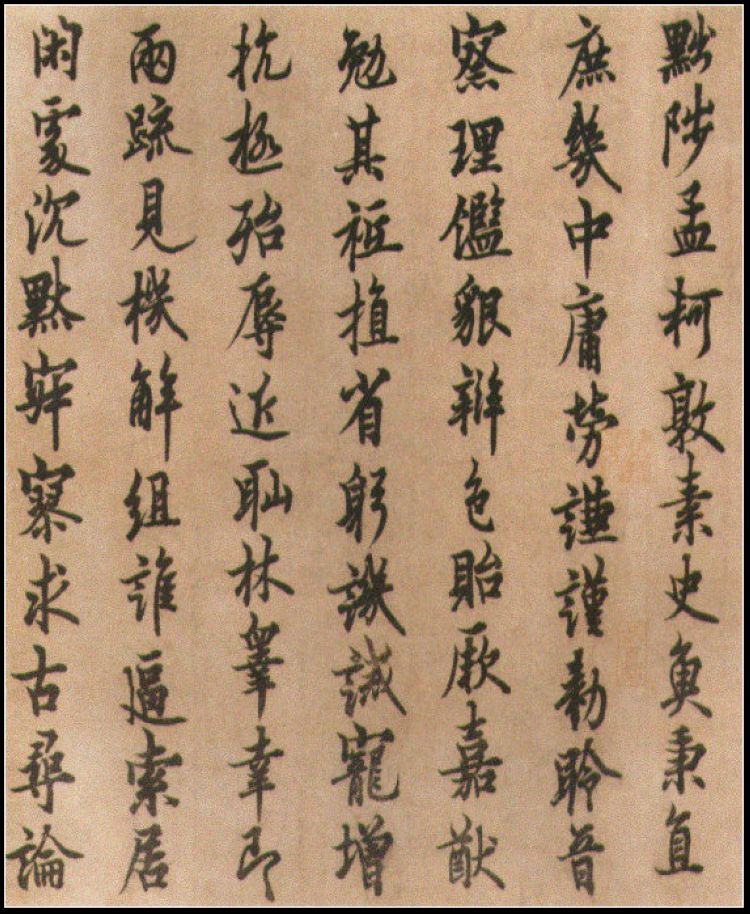 黜陟孟軻敦素史魚秉直
庶幾中庸勞謙謹勑聆音
察理鑑貌辨色貽厥嘉猷
勉其祗植省躬譏誡寵增
抗極殆辱近恥林睾幸即
兩疏見機解組誰逼索居
閑處沉默寂寥求古尋論